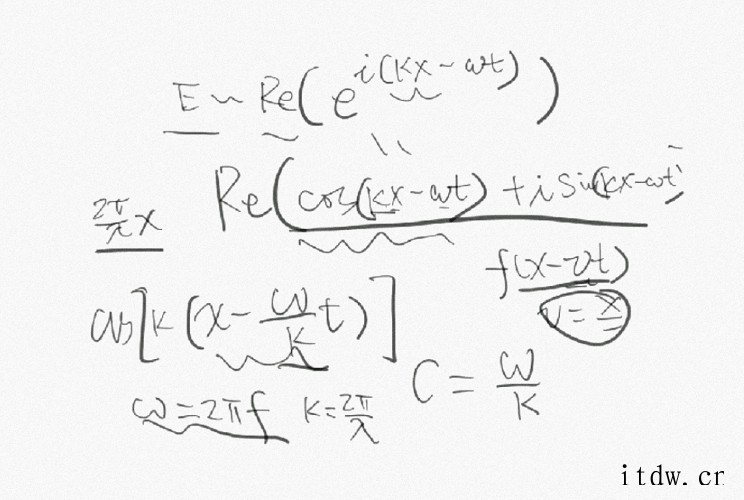 E ~ Re(e^{i(kx-ωt)})
Re(cos(kx-ωt) + i sin(kx-ωt)
2π/λ x
f(x-vt)
cos[k(x-ω/k t)]
C = ω/k
ω=2πf k=2π/λ
itdw.cr